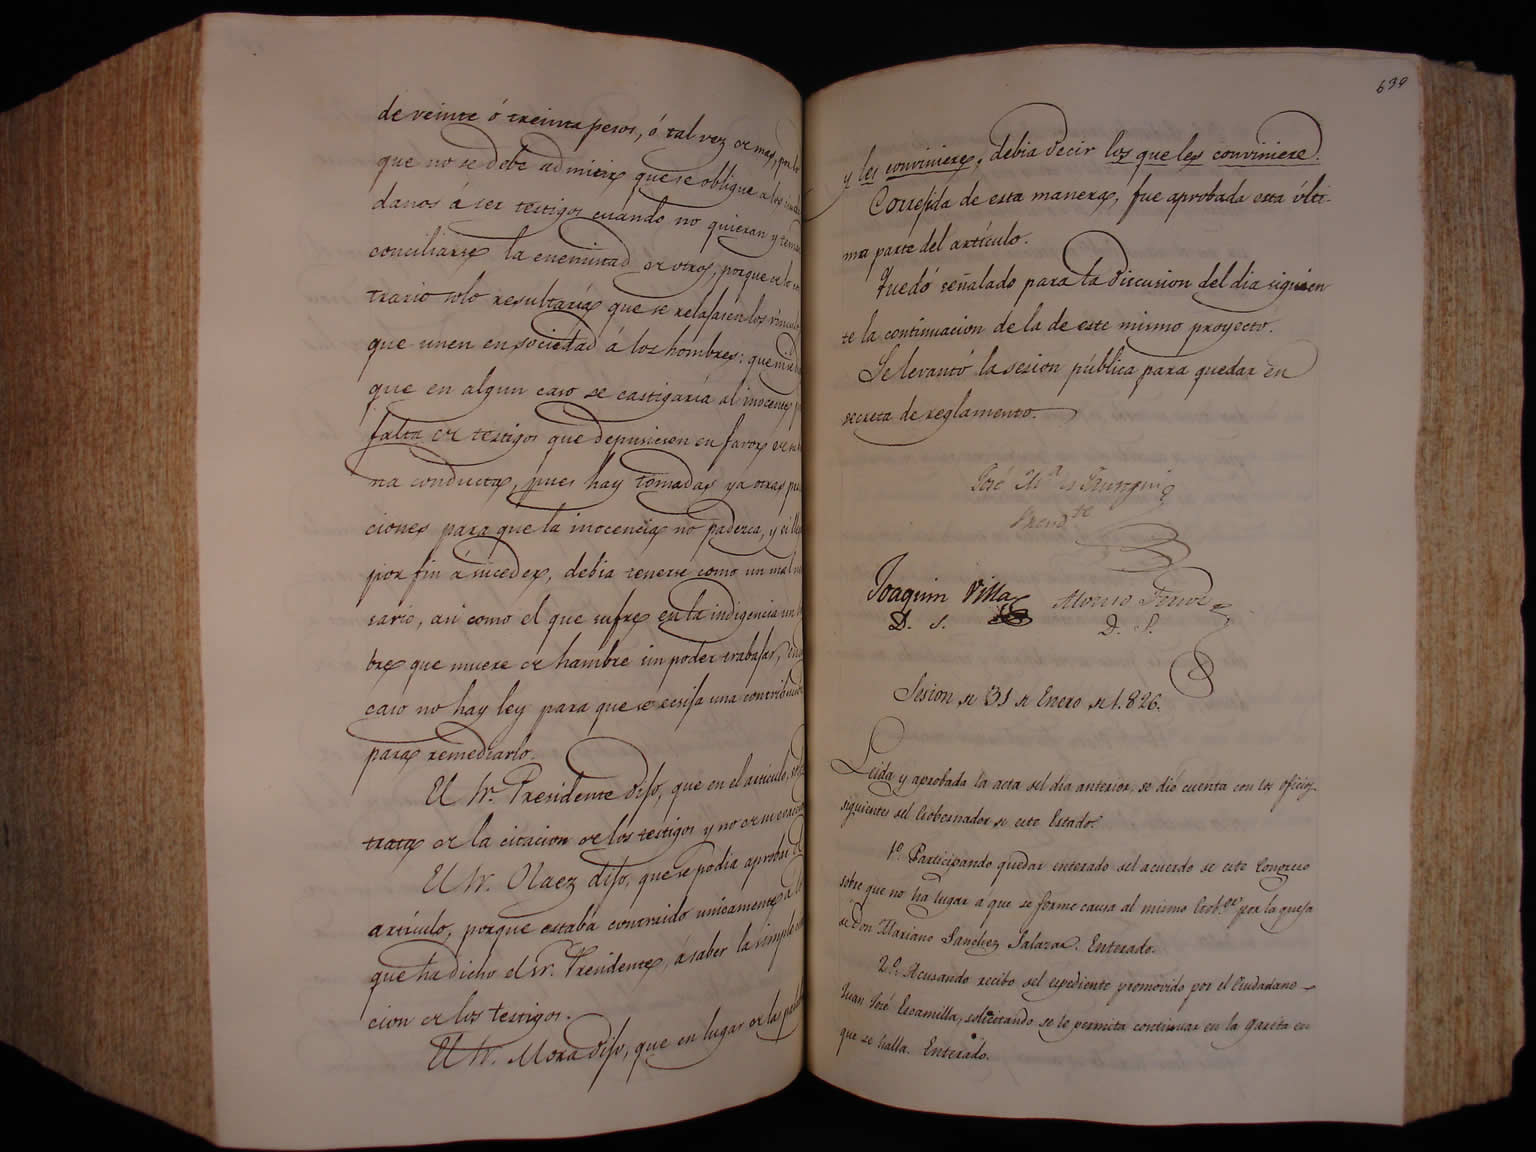 de veinte ó treinta pesos, ó tal vez de mas, por lo
que no se debe admitir que se obligue a los ciuda
danos á ser testigos cuando no quieran y teman
conciliarse la enemistad de otros, porque de lo con
trario solo resultaria que se relajasen los vinculos
que unen en sociedad á los hombres:
que en algun caso se castigaría al inocente por
falta de testigos que depusiesen en favor de su
na conducta, pues hay tomadas ya otras
ciones para que la inocencia no padezca, y si
por fin á suceder, debia tenerse como un mal
sario, asi como el que sufre en la indigencia un
bre que muere de hambre sin poder trabajar,
caso no hay ley para que se ecsija una contribucion
para remediarlo.
El Sr. Presidente dijo, que en el articulo, solo
trata de la citacion de los testigos y no de su
El Sr. Olaez dijo, que se podia aprobar el
articulo, porque estaba contraido unicamente a lo
que ha dicho el Sr. Presidente, á saber la simple
cion de los testigos.
El Sr. Mora dijo, que en lugar de las
639
y les conviniere, debia decir los que les conviniere.
Correjida de esta manera, fue aprobada esta últi-
ma parte del artículo.
Quedó señalado para la discusion del dia siguien
te la continuacion de la de este mismo proyecto.
Se levantó la sesion pública para quedar en
secreta de reglamento.
José Ma. de
Presidte
Joaquin Villa
D. S.
D. S.
Sesion de 31 de Enero de 1.826.
Leida y aprobada la acta del dia anterior, se dió cuenta con los oficios
siguientes del Gobernador de este Estado.
1º. Participando quedar enterado del acuerdo de este Congreso
sobre que no ha lugar á que se forme causa al mismo Gob.or por la queja
de Don Mariano Sanchez Salazar. Enterado.
2º. Acusando recibo del espediente promovido por el Ciudadano
Juan José Escamilla, solicitando se le permita continuar en la garita en
que se halla. Enterado.